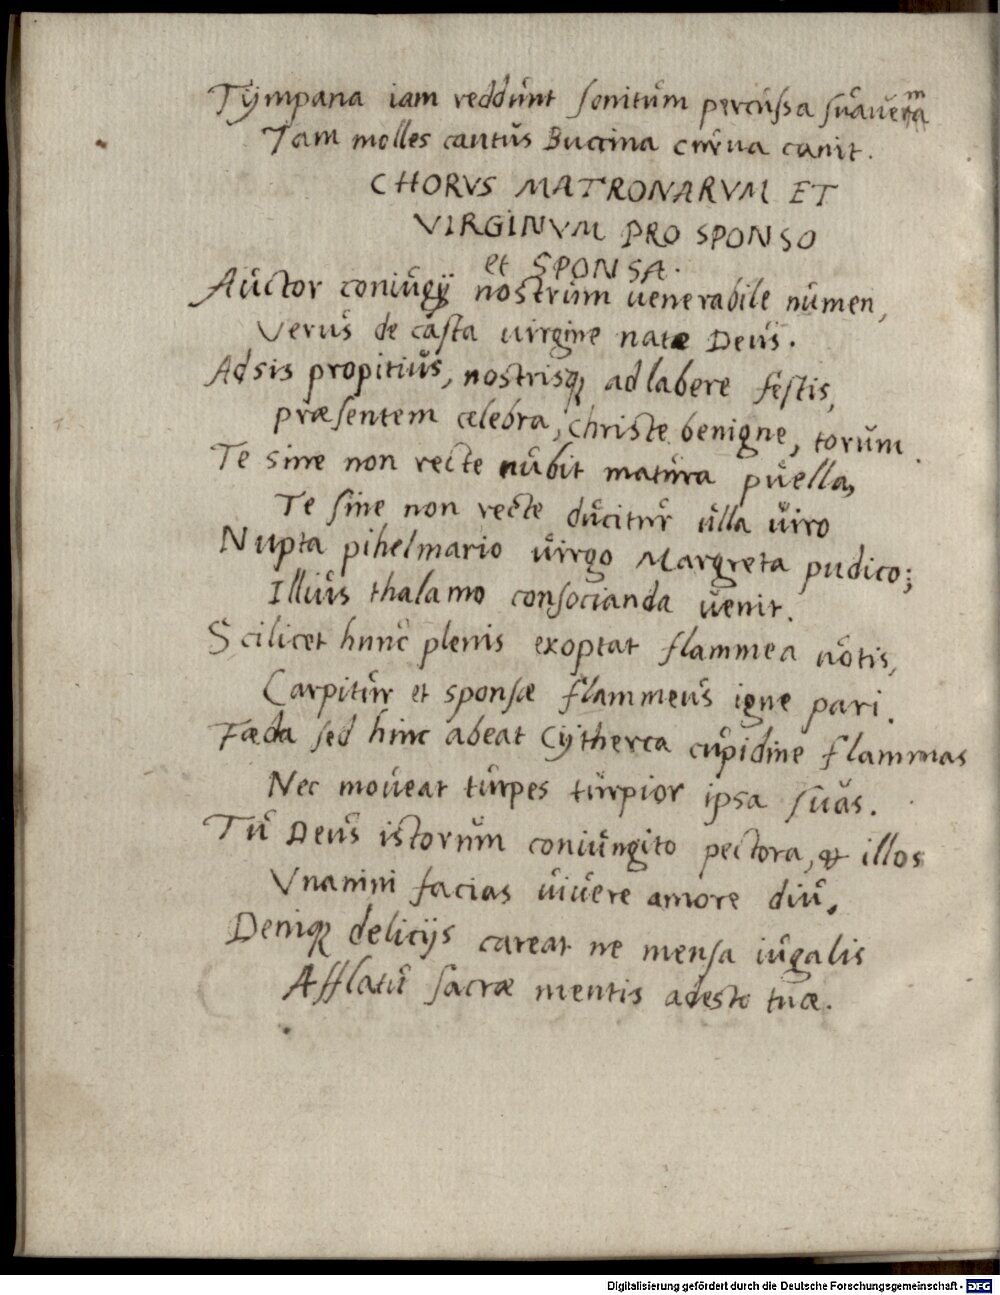 Tympana iam reddunt sonitum percussa suavem
Iam molles cantus Buccina curva canit.
CHORVS MATRONARVM ET
VIRGINVM PRO SPONSO
et SPONSA.
Auctor coniugij nostrum venerabile numen,
Verus de casta virgine nate Deus.
Adsis propitius, nostrisq; adlabere festis,
præsentem celebra, Christe benigne, torum.
Te sine non recte nubit matura puella,
Te sine non recte ducitur ulla viro
Nupta pihelmario virgo Margreta pudico;
Illius thalamo consocianda venit.
Scilicet hunc plenis exoptat flammea votis,
Carpitur et sponsæ flammeus igne pari.
Fæda sed hinc abeat Cytherea cupidine flammas
Nec moveat turpes turpior ipsa suas.
Tu Deus istorum coniungito pectora, & illos
Vnanini facias vivere amore diu,
Deniq; delicijs careat ne mensa iugalis
Afflatu sacræ mentis adesto tuæ.
Digitalisierung gefördert durch die Deutsche Forschungsgemeinschaft - DFG